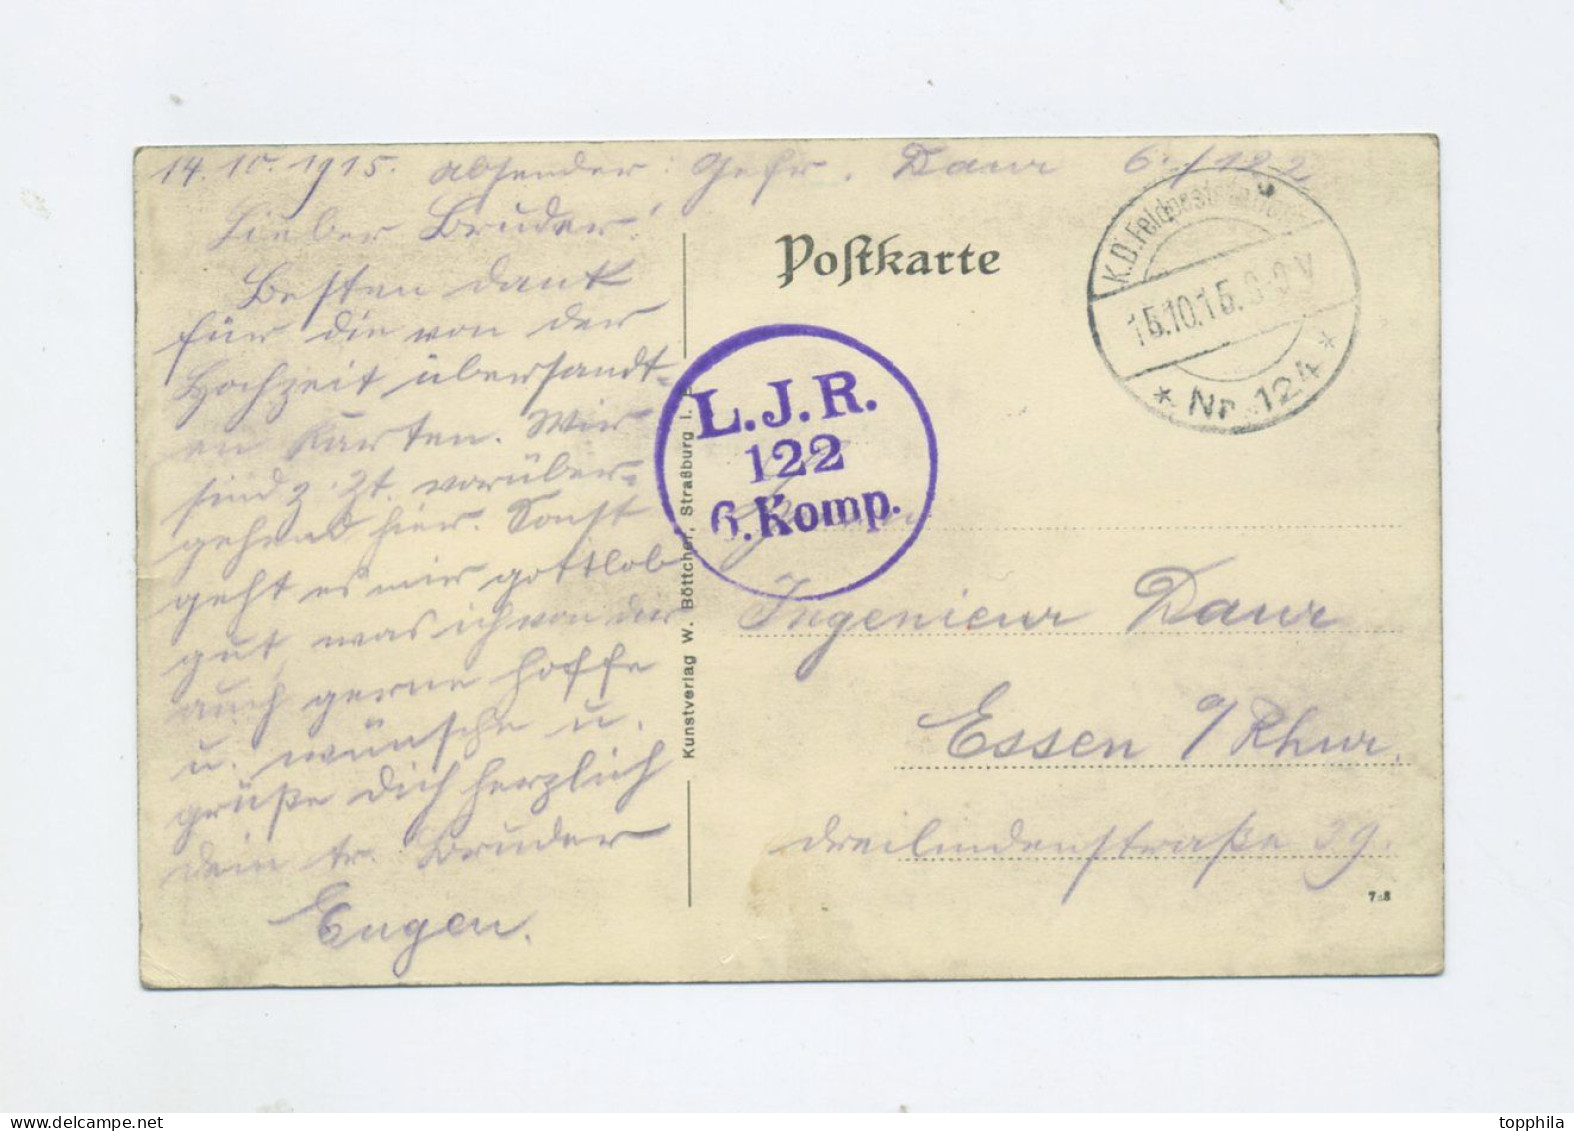 14.10.1915. Absender: Gefr. Daur 6./122
Lieber Bruder!
Besten Dank
für die von der
Hochzeit übersandt-
en Karten. Wir
sind z. Zt. vorüber-
gehend hier. Sonst
geht es mir gottlob
gut, was ich von dir
auch gerne hoffe
u. wünsche u.
grüße Dich herzlich
dein tr. Bruder
Eugen.
Kunstverlag W. Böttcher, Straßburg i.
Postkarte
L.J.R.
122
6.Komp.
K.D.Feldpoststation
15.10.15.
* Nr. 124 *
Ingenieur Daur
Essen a/Rhur.
Dreilindenstraße 39.
7-8
topphila